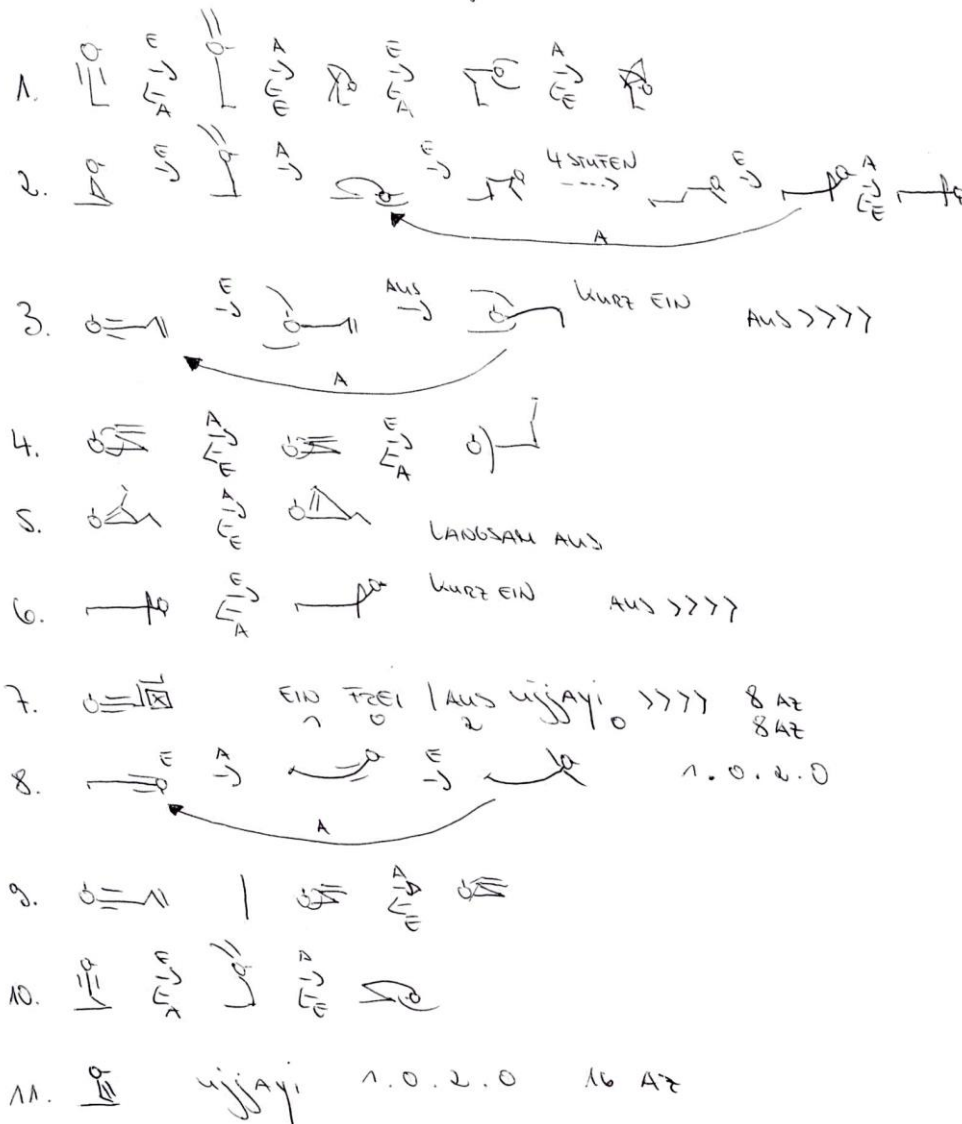 1. E A A E E A A E
2. E A E 4 STUFEN E A E
A
3. E AUS KURZ EIN AUS >>>>
A
4. A E E A
5. A E LANGSAM AUS
6. E A KURZ EIN AUS >>>>
7. EIN FREI | AUS ujjayi >>>> 8 AZ
1 0 2 0 8 AZ
8. E A E 1.0.2.0
A
9. A E
10. E A A E
11. ujjayi 1.0.2.0 16 AZ